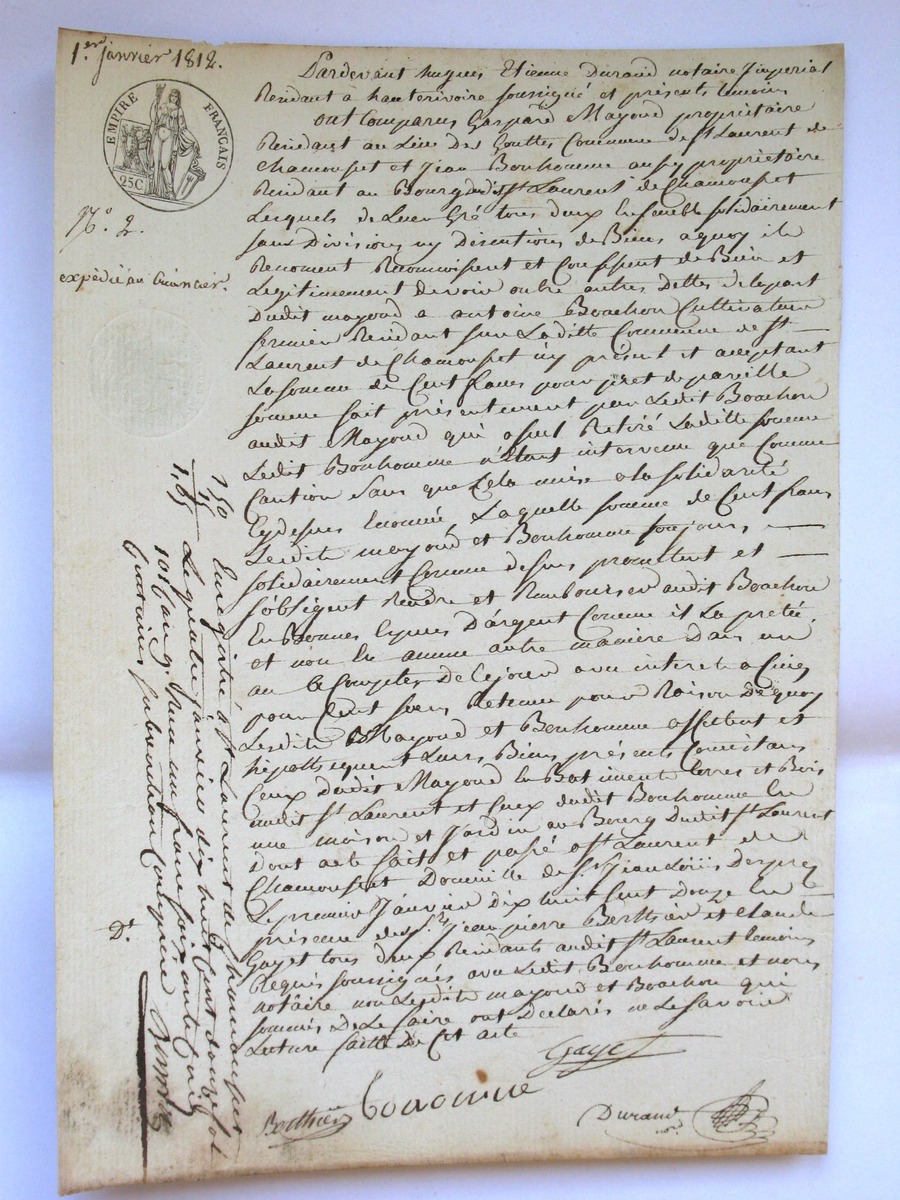 1.er janvier 1812.
EMPIRE FRANÇAIS
25C
N.o 2.
expédié au Créancier.
Pardevant hugues Etienne Durand notaire Imperial
Residant a hauterivoire soussigné et présents temoins
ont Comparus Gaspard Mayoud propriétaire
Residant au Lieu des Gouttes Commune de St Laurent de
Chamousset et Jean Bonhomme aussy propriétaire
Residant au Bourg dudit St Laurent de Chamousset
Lesquels de Leur Gré tous deux Ensemble solidairement
sans Divisions ny Discutions de Biens a quoy ils
Renoncent Reconnoissent et Confessent de Bien et
Legitimement devoir outre autres Dettes de la part
Dudit mayoud a antoine Boachon Cultivateur
fermier Residant sur Laditte Commune de St
Laurent de Chamousset icy présent et acceptant
La somme de Cent francs pour pret de pareille
somme fait présentement par Ledit Boachon
audit Mayoud qui a seul Retiré Laditte somme
Ledit Bonhomme n'étant intervenu que Comme
Caution sans que Cela nuise a la solidarité
Cydessus Enoncée, Laquelle somme de Cent francs
Lesdits mayoud et Bonhomme toujours
solidairement Comme dessus promettent et
s'obligent Rendre et Rembourser audit Boachon
En Bonnes Espèces D'argent Comme il La preté,
et non En aucune autre manière Dans un
an a Compter de Ce jour avec interet a Cinq
pour Cent sans Retenue pour Raison De quoy
Lesdits Mayoud et Bonhomme affectent et
hipothequent Leurs Biens présents Consistans
Ceux dudit Mayoud En Batiment terres et Bois
audit St Laurent et Ceux dudit Bonhomme En
une maison et Jardin au Bourg Dudit St Laurent
Dont acte fait et passé a St Laurent de
Chamousset Domicille de Sr Jean Despres
Le premier Janvier dix huit Cent Douze En
présence de Srs Jean pierre Berthier et Claude
Gayet tous deux Residants audit St Laurent temoins
Requis soussignés avec Ledit Bonhomme et nous
notaire non Lesdits mayoud et Boachon qui
sommés De Le faire ont Declarés ne Le savoir
Lecture faitte De Cet acte
Gayet
Berthier
Bonomme
Durand
no.re
D.t
1,50
15
1,65
Enregistré a St Laurent de Chamousset
Le quatre janvier dix huit Cent douze fol
101 Reçu un franc soixante Cinq
Centaines subvention Comprise